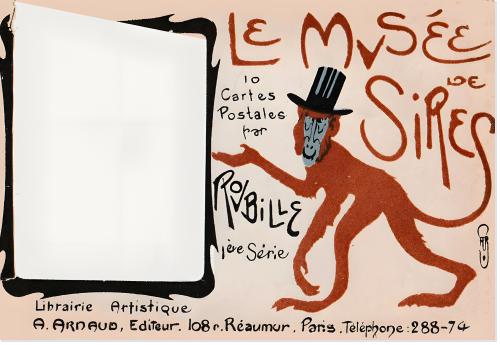 LE MVSÉE
DE
SIRES
10
Cartes
Postales
par
ROVBILLE
1ère Série
Librairie Artistique
A. ARNAUD, Editeur. 108 r. Réaumur. Paris. Téléphone: 288-74